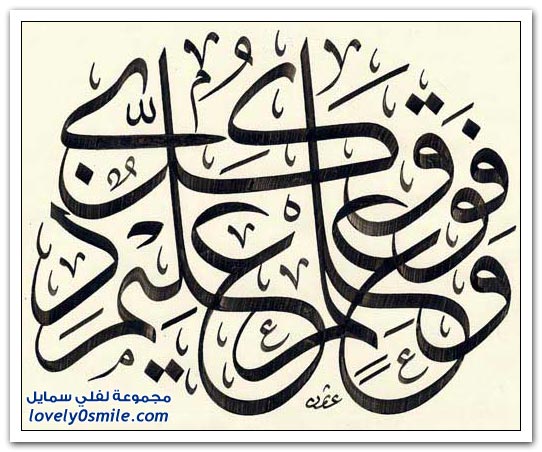 وفوق كل ذي علم عليم
مجموعة لفلي سمايل
lovely0smile.com